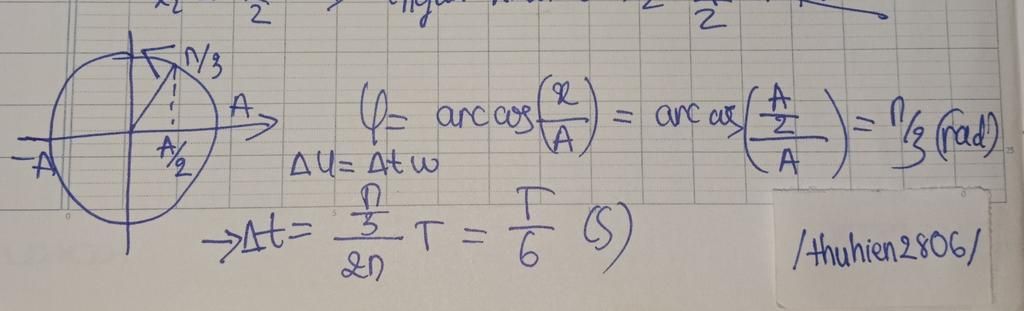 x2 2 2 2
π/3
A
-A
A/2
φ = arc cos(x/A) = arc cos((A/2)/A) = π/3 (rad)
Δφ = Δt ω
→Δt = (π/3)/2π T = T/6 (S)
/thuhien2806/